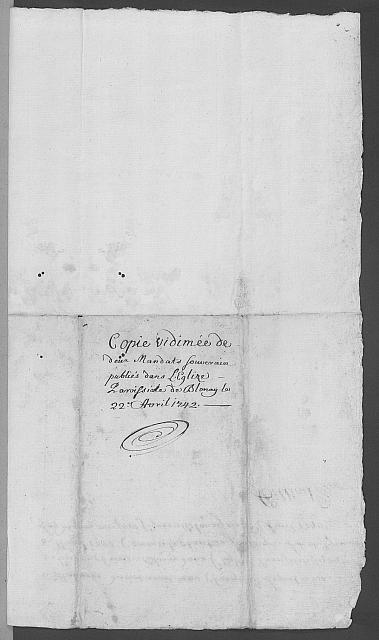 Copie vidimée de
deux Mandats souverain
publiés dans L'Eglize
Paroissiale de Blonay le
22e. Avril 1742.